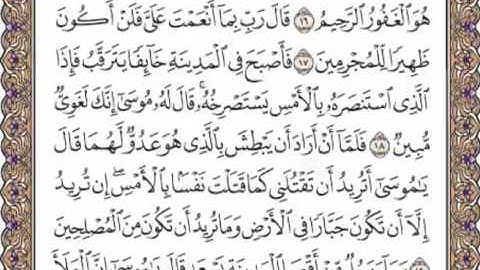 هُوَ ٱلْغَفُورُ ٱلرَّحِيمُ ١٦ قَالَ رَبِّ بِمَآ أَنْعَمْتَ عَلَىَّ فَلَنْ أَكُونَ
ظَهِيرًا لِّلْمُجْرِمِينَ ١٧ فَأَصْبَحَ فِى ٱلْمَدِينَةِ خَآئِفًا يَتَرَقَّبُ فَإِذَا
ٱلَّذِى ٱسْتَنصَرَهُۥ بِٱلْأَمْسِ يَسْتَصْرِخُهُۥ ۚ قَالَ لَهُۥ مُوسَىٰٓ إِنَّكَ لَغَوِىٌّ
مُّبِينٌ ١٨ فَلَمَّآ أَنْ أَرَادَ أَن يَبْطِشَ بِٱلَّذِى هُوَ عَدُوٌّ لَّهُمَا قَالَ
يَٰمُوسَىٰٓ أَتُرِيدُ أَن تَقْتُلَنِى كَمَا قَتَلْتَ نَفْسًۢا بِٱلْأَمْسِ ۖ إِن تُرِيدُ
إِلَّآ أَن تَكُونَ جَبَّارًا فِى ٱلْأَرْضِ وَمَا تُرِيدُ أَن تَكُونَ مِنَ ٱلْمُصْلِحِينَ
١٩ وَجَآءَ رَجُلٌ مِّنْ أَقْصَا ٱلْمَدِينَةِ يَسْعَىٰ قَالَ يَٰمُوسَىٰٓ إِنَّ ٱلْمَلَأَ